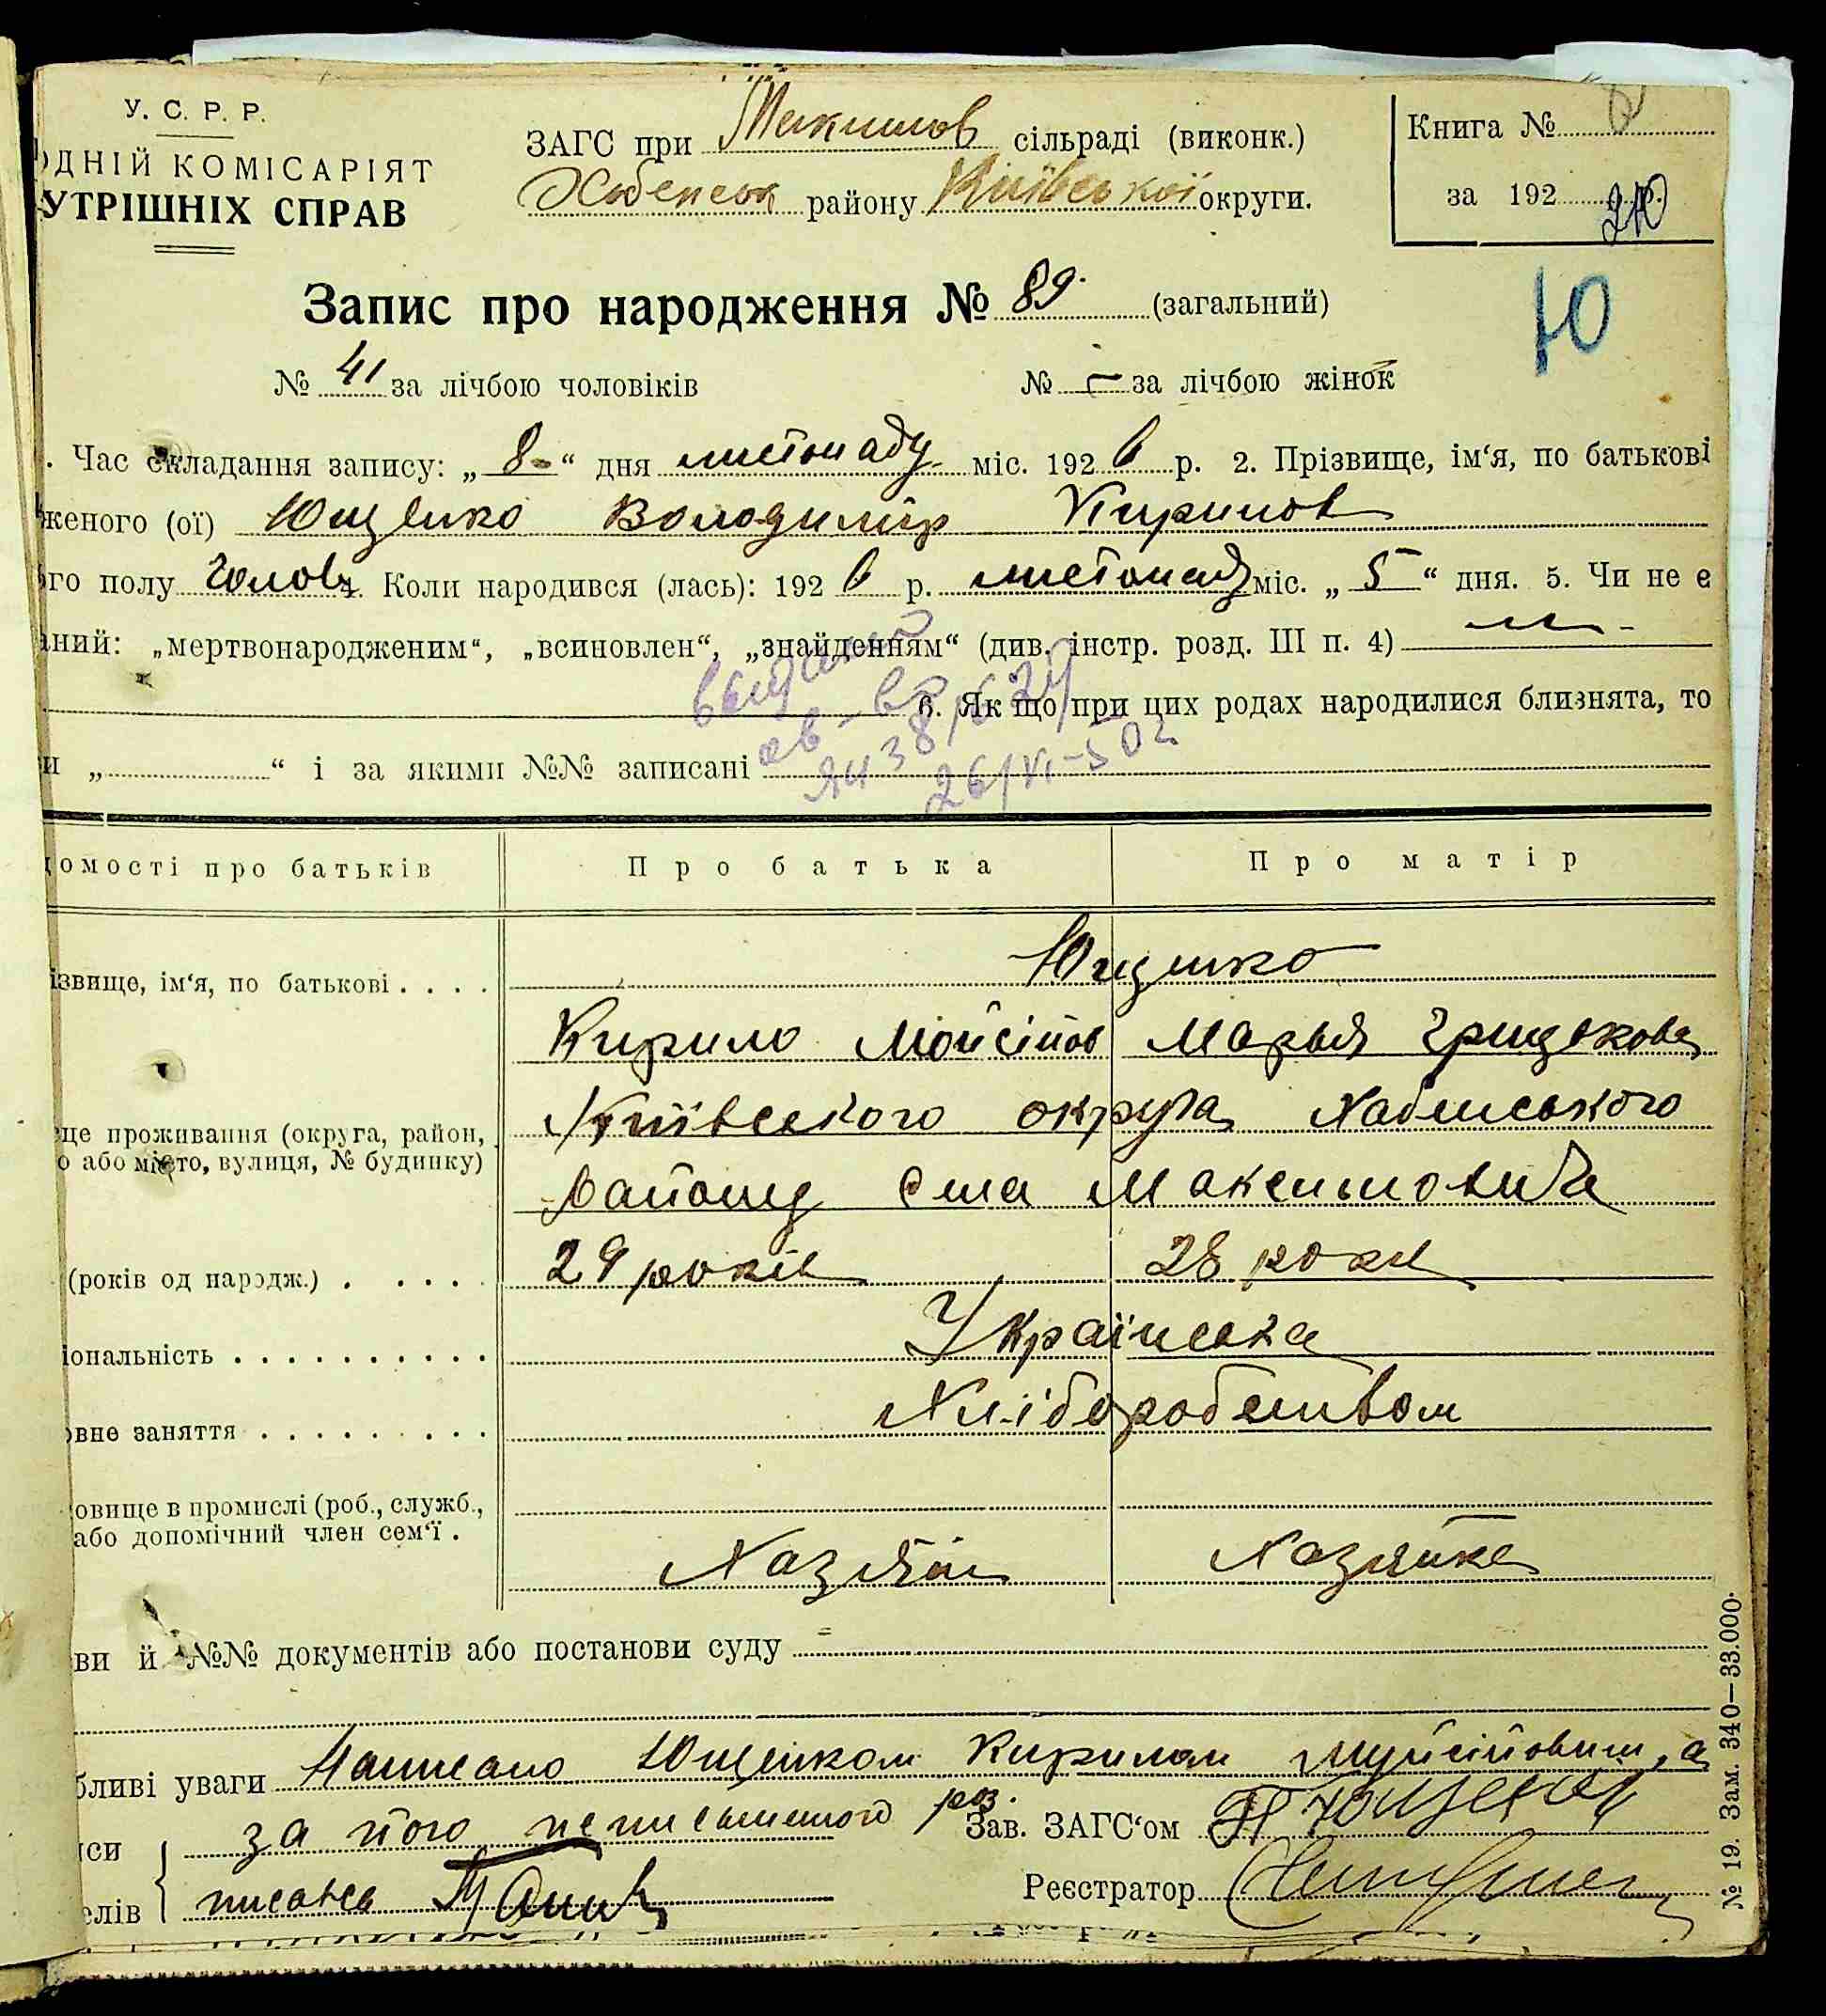 У. С. Р. Р.
ОДНІЙ КОМІСАРІЯТ
УТРІШНІХ СПРАВ
ЗАГС при сільраді (виконк.)
району Київської округи.
Книга №
за 192 р.
Запис про народження № 89. (загальний)
Ю
№ 41 за лічбою чоловіків № – за лічбою жінок
. Час складання запису: „ 8 “ дня листопаду міс. 192 6 р. 2. Прізвище, ім‘я, по батькові
женого (ої) Ющенко Володимір Кирилов
ого полу Чолов. Коли народився (лась): 192 6 р. листопад міс. „ 5 “ дня. 5. Чи не є
аний: „мертвонародженим“, „всиновлен“, „знайденням“ (див. інстр. розд. III п. 4)
6. Як що при цих родах народилися близнята, то
и „ “ і за якими №№ записані
26/VI-50г
домості про батьків Про батька Про матір
ізвище, ім‘я, по батькові . . . . Ющенко
Кирило Мойсійов Марья Грицькова
це проживання (округа, район, Київського округа Хабенського
о або місто, вулиця, № будинку) Району Села Максимовичи
(років од народж.) . . . . 29 років 28 роки
іональність . . . . . . . . . . Українська
овне заняття . . . . . . . . . Хліборобством
овище в промислі (роб., служб.,
або допомічний член сем‘ї . Хазяїн Хазяйка
ви й №№ документів або постанови суду
бливі уваги Написано Ющенком Кирилом Муйсійовим, а
иси за його неписьменого роз. Зав. ЗАГС‘ом Ющенко
елів писався Реєстратор
№ 19. Зам. 340—33.000.